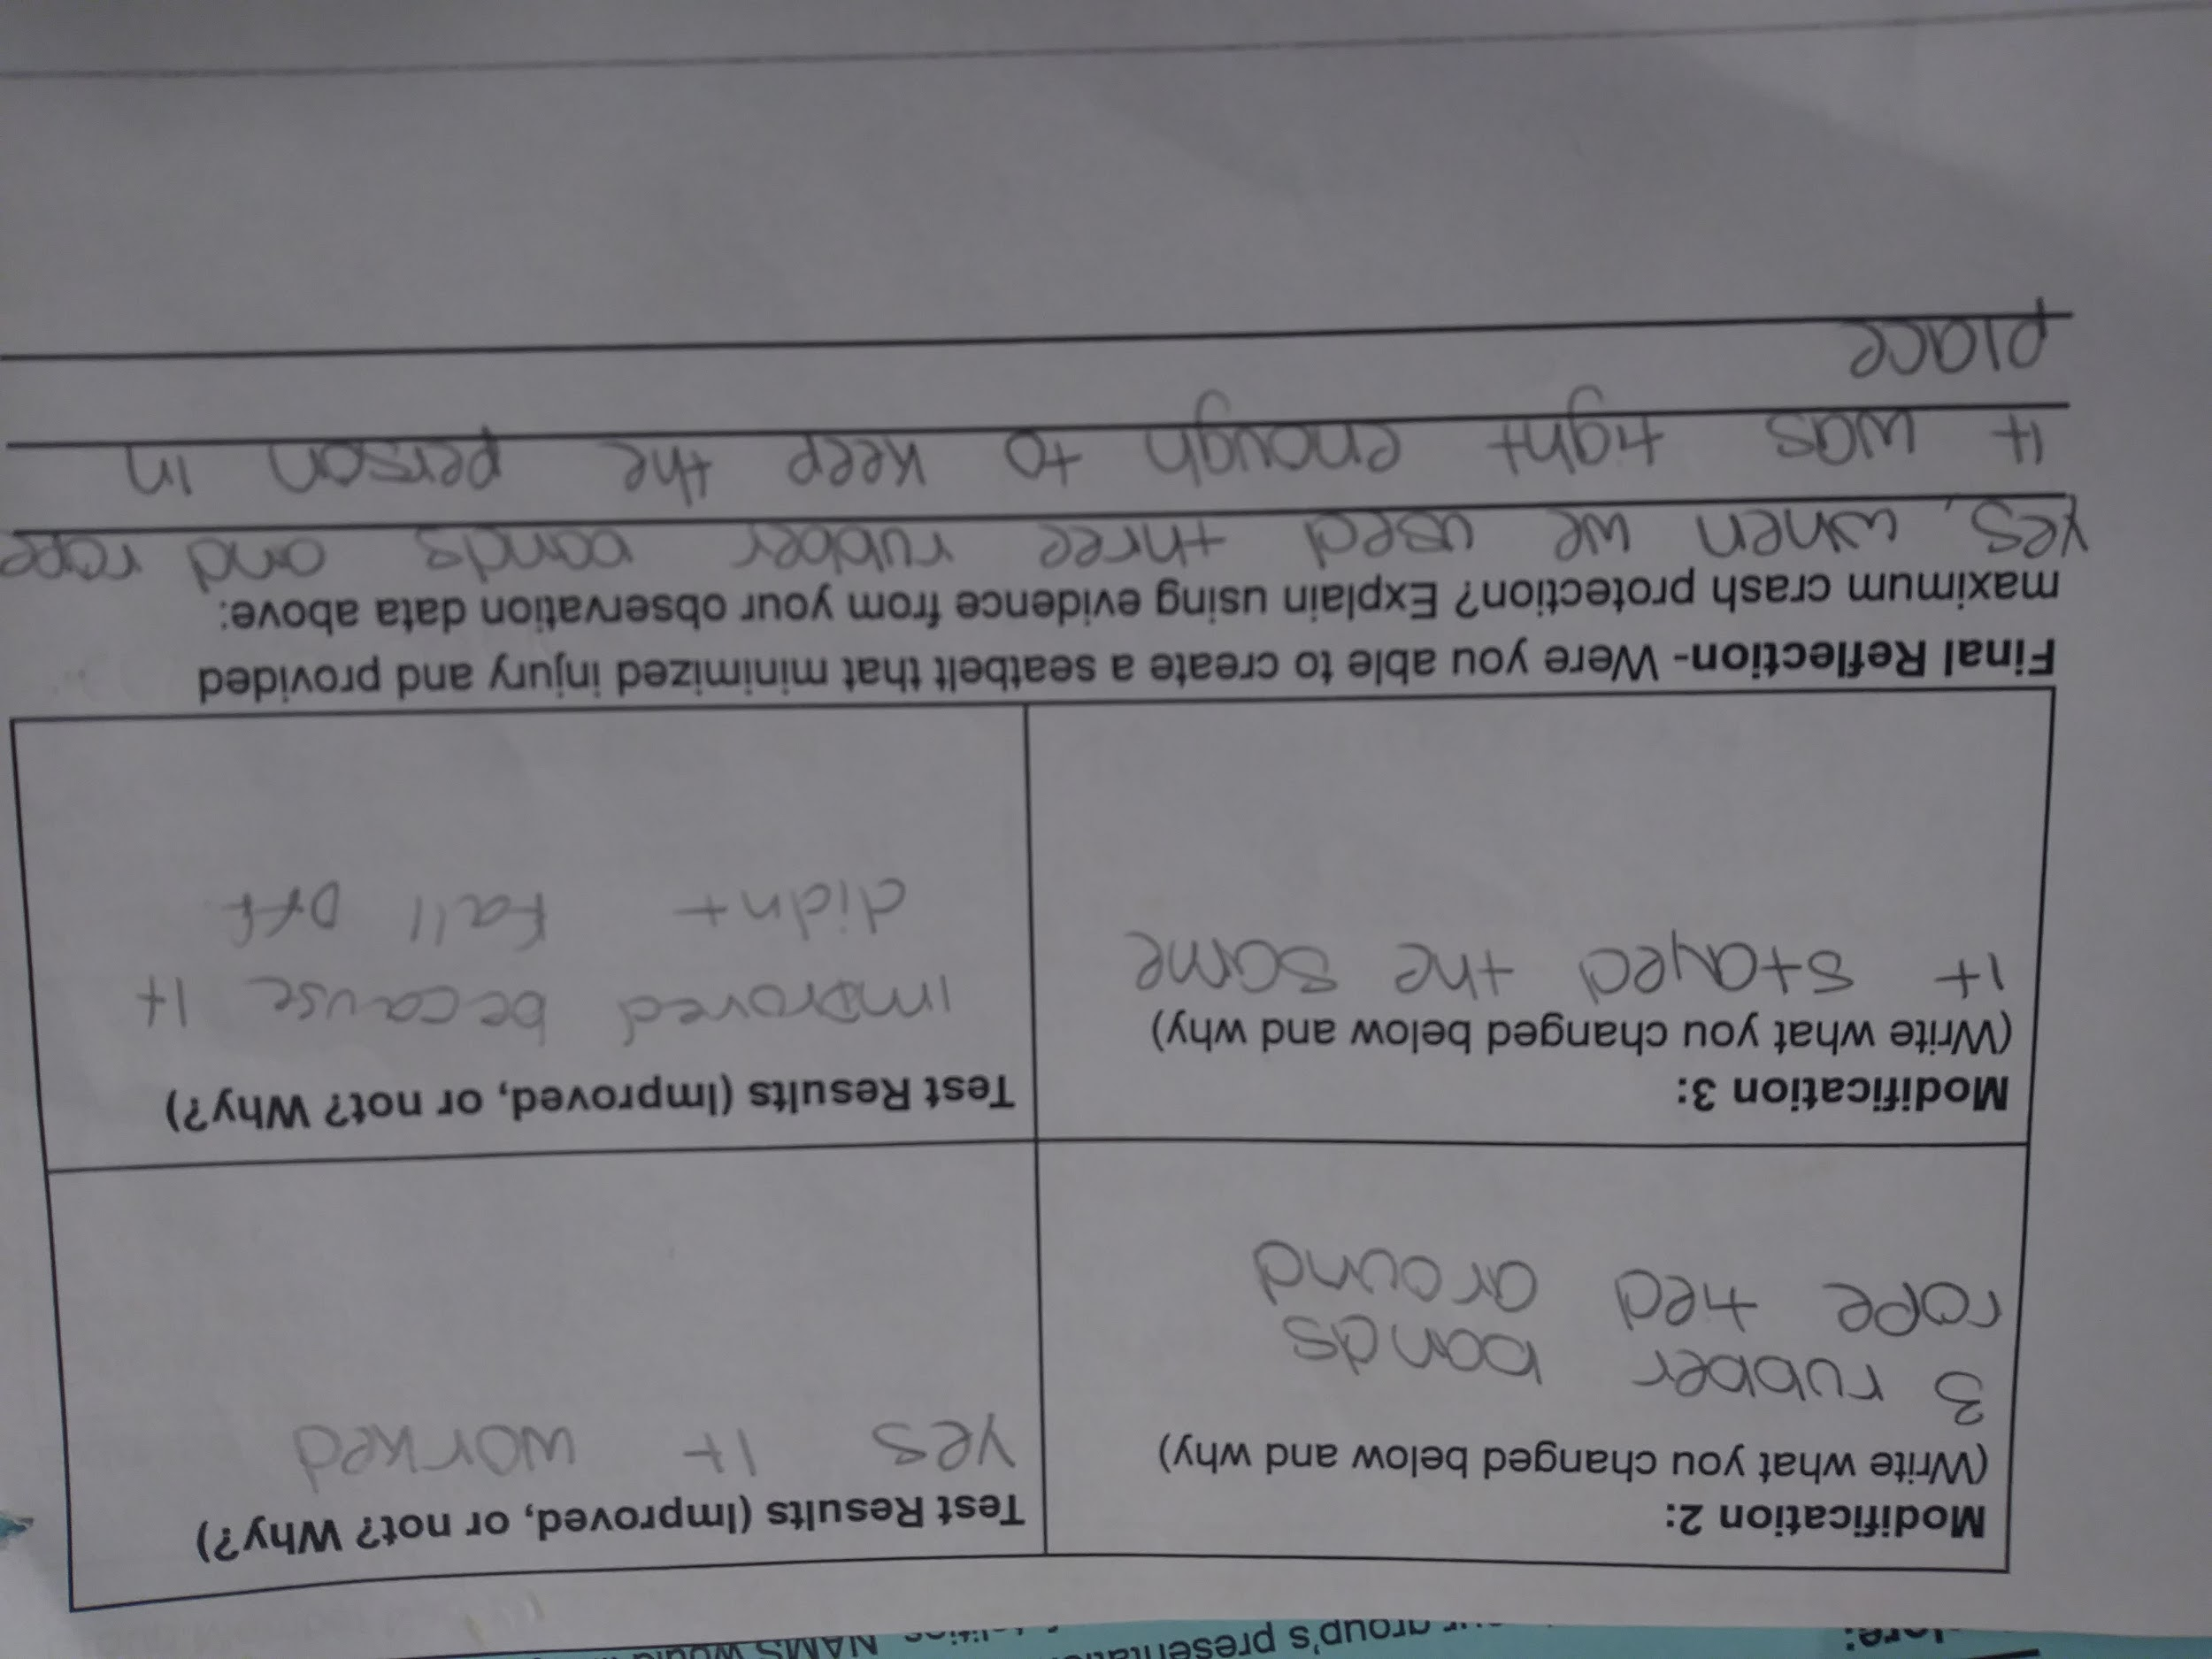 group's presentati
NAMS would
Modification 2:
(Write what you changed below and why)
3 rubber bands
rope tied around
Test Results (Improved, or not? Why?)
yes it worked
Modification 3:
(Write what you changed below and why)
It stayed the same
Test Results (Improved, or not? Why?)
improved because it
didnt fall off
Final Reflection- Were you able to create a seatbelt that minimized injury and provided
maximum crash protection? Explain using evidence from your observation data above:
Yes, when we used three rubber bands and rope
it was tight enough to keep the person in
place